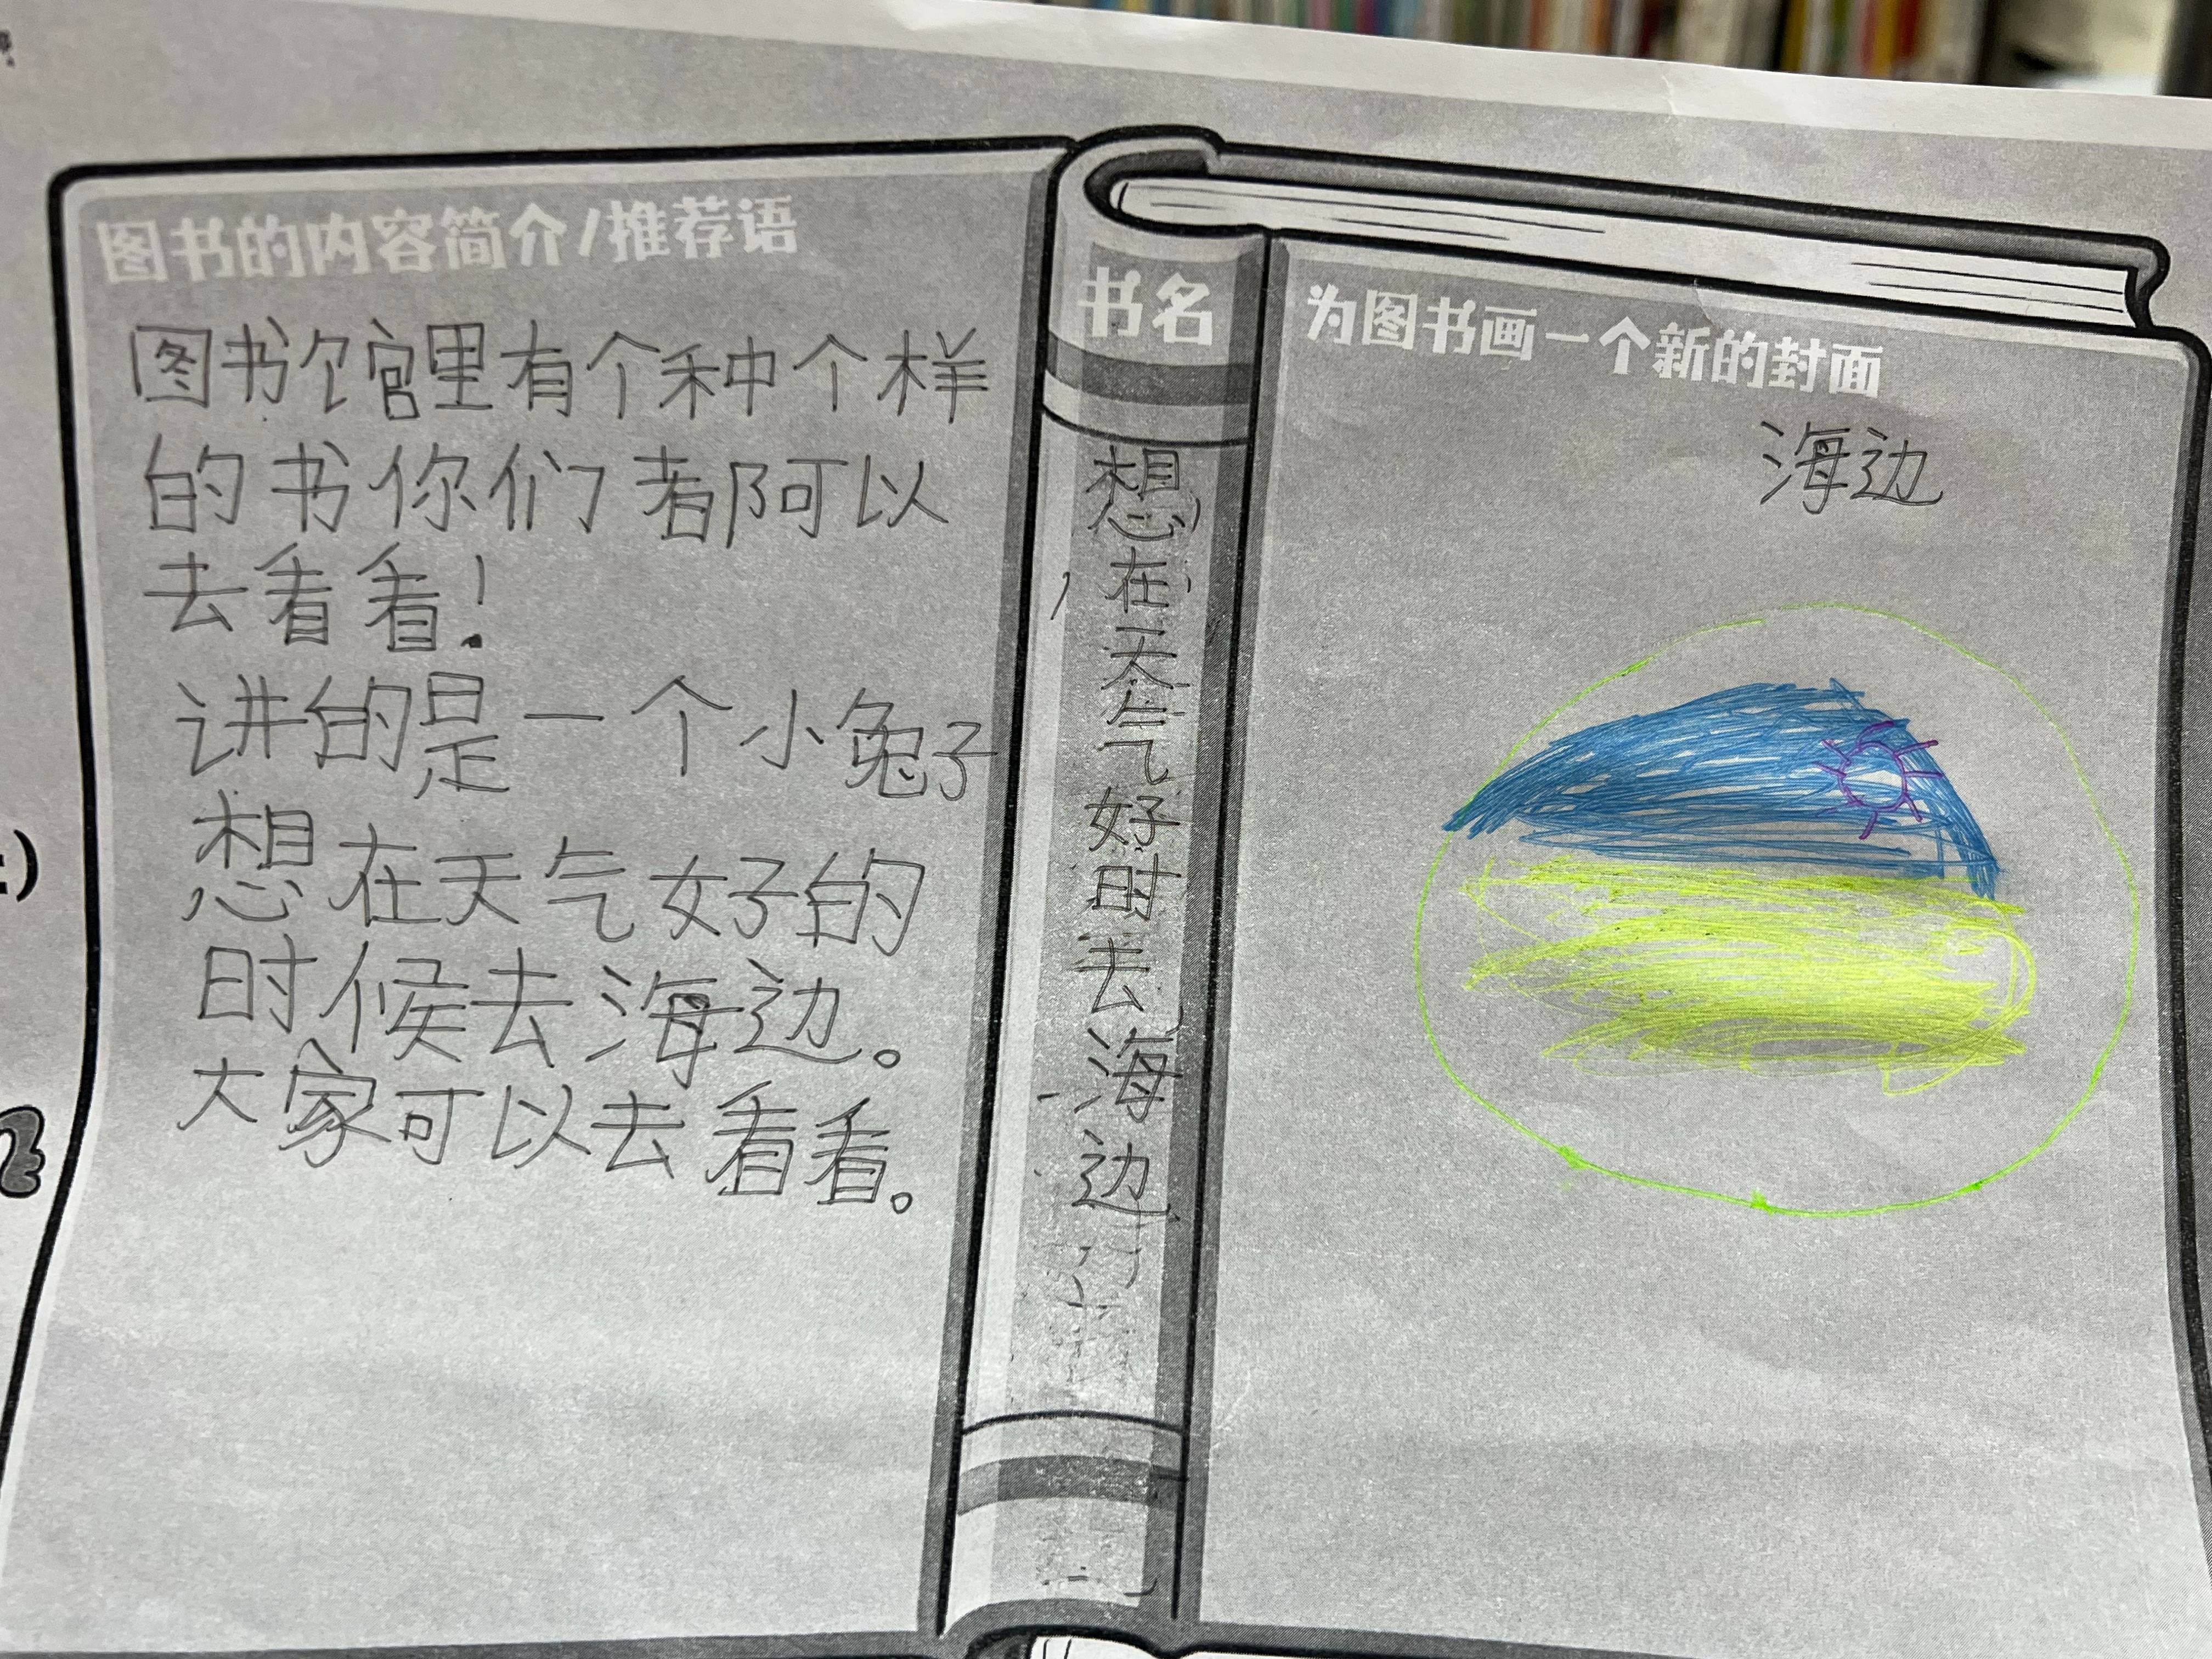 图书的内容简介/推荐语
图书馆里有个种个样
的书你们都可以
去看看!
讲的是一个小兔子
想在天气好的
时候去海边。
大家可以去看看。
书名
想在天气好时去海边
为图书画一个新的封面
海边